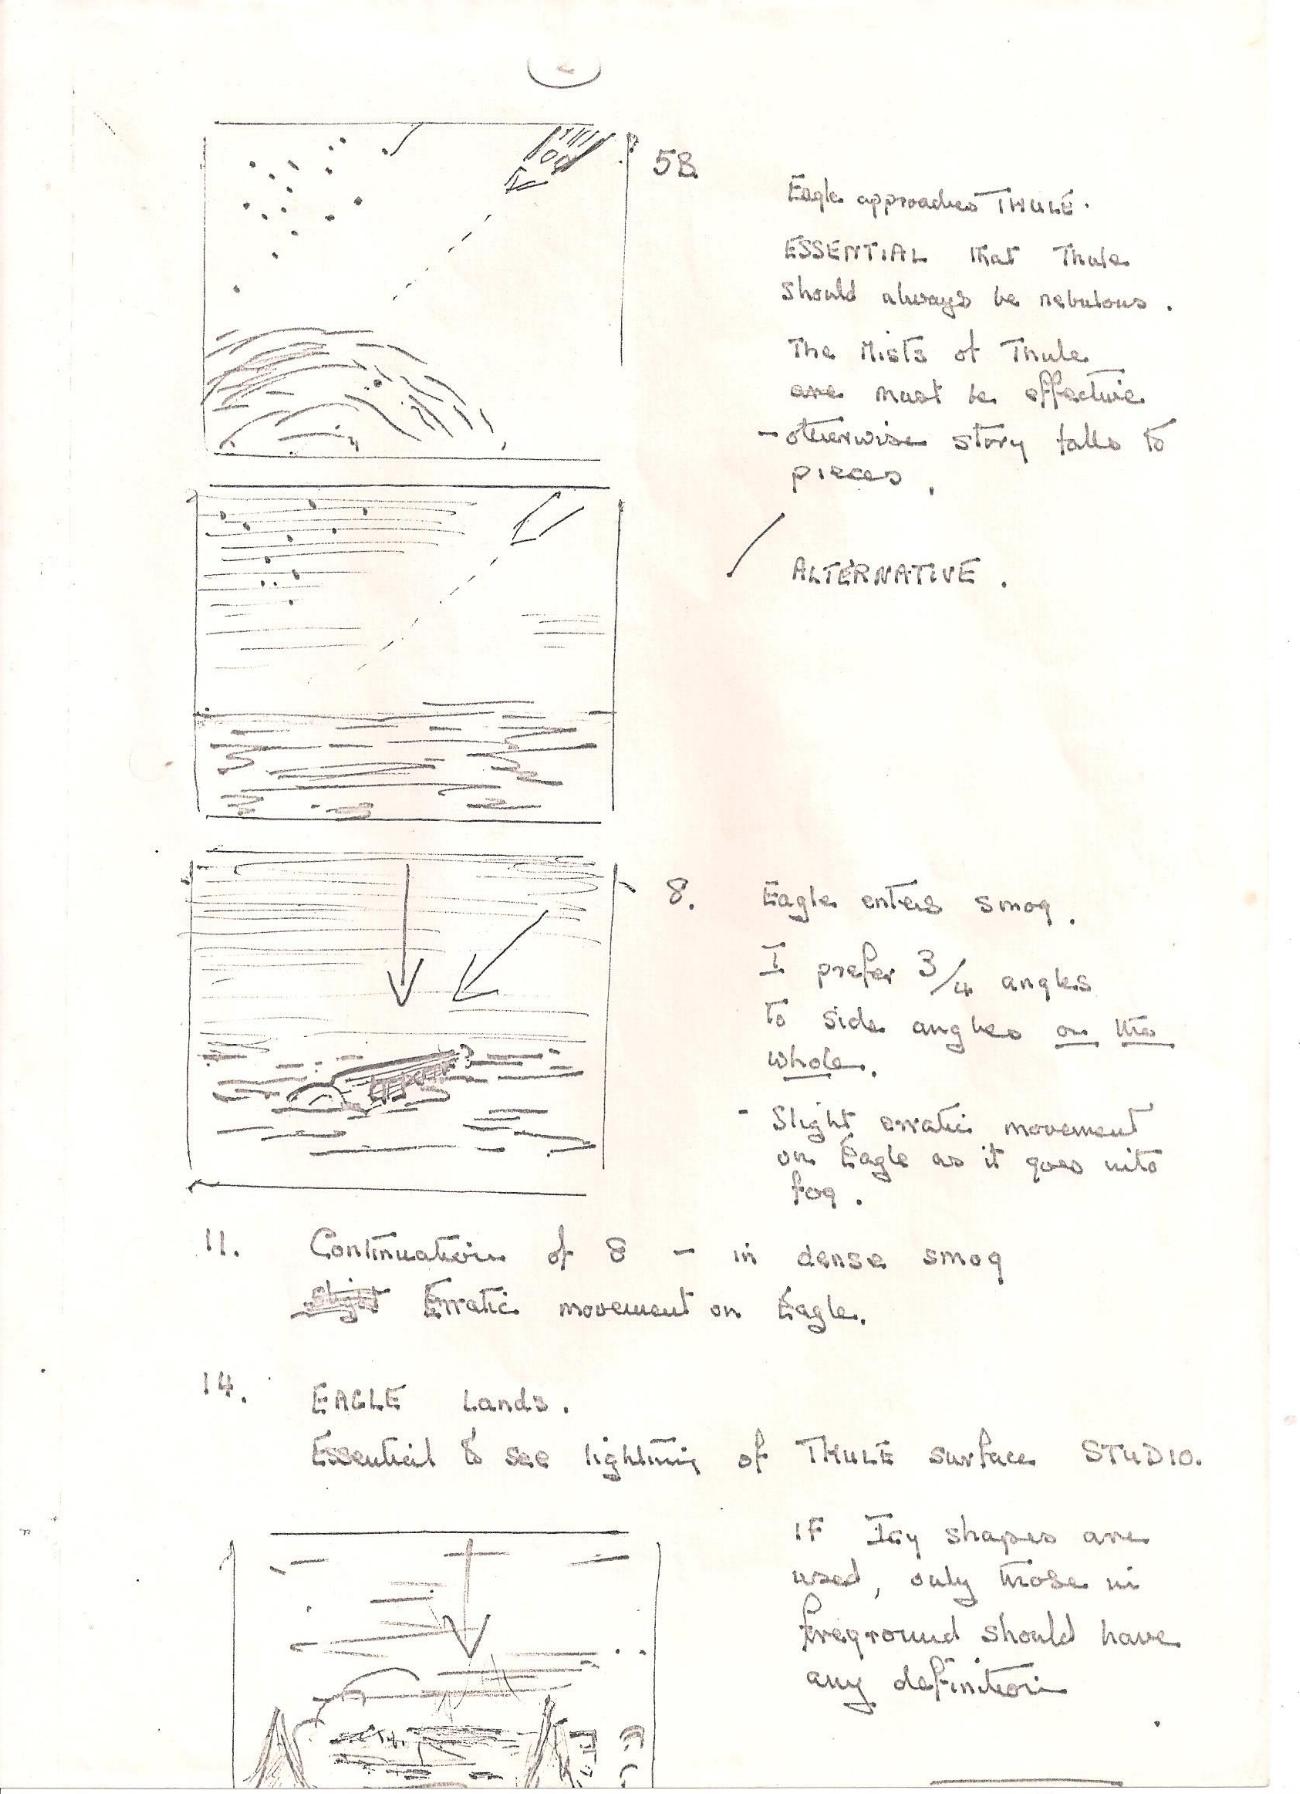 2
5B.
Eagle approaches THULE.
ESSENTIAL that Thule
should always be nebulous.
The Mists of Thule
are must be effective
- otherwise story falls to
pieces.
ALTERNATIVE.
8.
Eagle enters smog.
I prefer 3/4 angles
to side angles on the
whole.
- Slight erratic movement
on Eagle as it goes into
fog.
11. Continuation of 8 - in dense smog
slight Erratic movement on Eagle.
14. EAGLE Lands.
Essential to see lighting of THULE surface STUDIO.
IF Icy shapes are
used, only those in
foreground should have
any definition